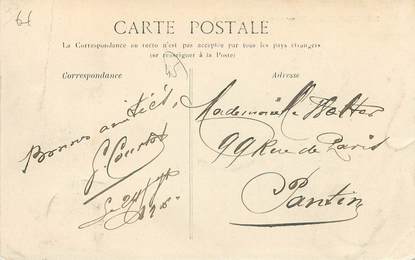 66
CARTE POSTALE
La Correspondance au recto n'est pas acceptée par tous les pays étrangers
(se renseigner à la Poste)
Correspondance
Adresse
Bonnes amitiés,
G. Courtois
Mademoiselle Walter
99 Rue de Paris
Pantin